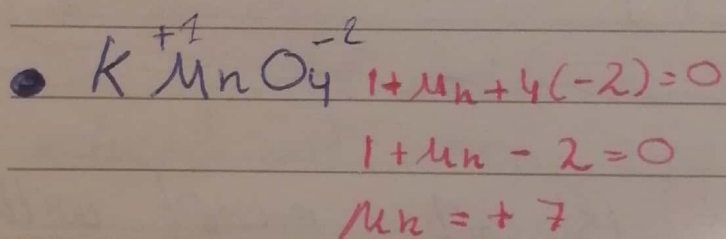 • K⁺¹MnO₄⁻² 1+Mn+4(-2)=0
1+Mn-2=0
Mn=+7